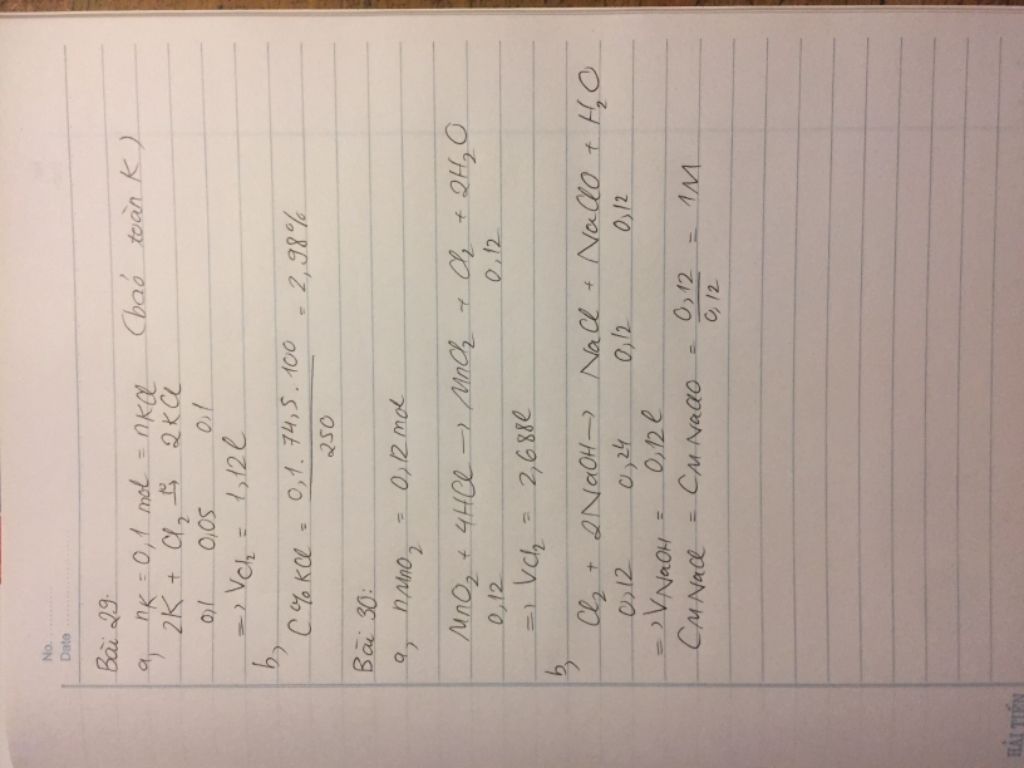 No.
Date
Bài 29.
a, nK = 0,1 mol = nKCl (baỏ toàn K)
2K + Cl2 → 2KCl
0,1 0,05 0,1
=> VCl2 = 1,12l
b,
C% KCl = 0,1.74,5.100 / 250 = 2,98%
Bài 30:
a, nMnO2 = 0,12 mol
MnO2 + 4HCl → MnCl2 + Cl2 + 2H2O
0,12 0,12
=> VCl2 = 2,688l
b,
Cl2 + 2NaOH → NaCl + NaClO + H2O
0,12 0,24 0,12 0,12
=> VNaOH = 0,12l
CM NaCl = CM NaClO = 0,12 / 0,12 = 1M
HẢI TIẾN